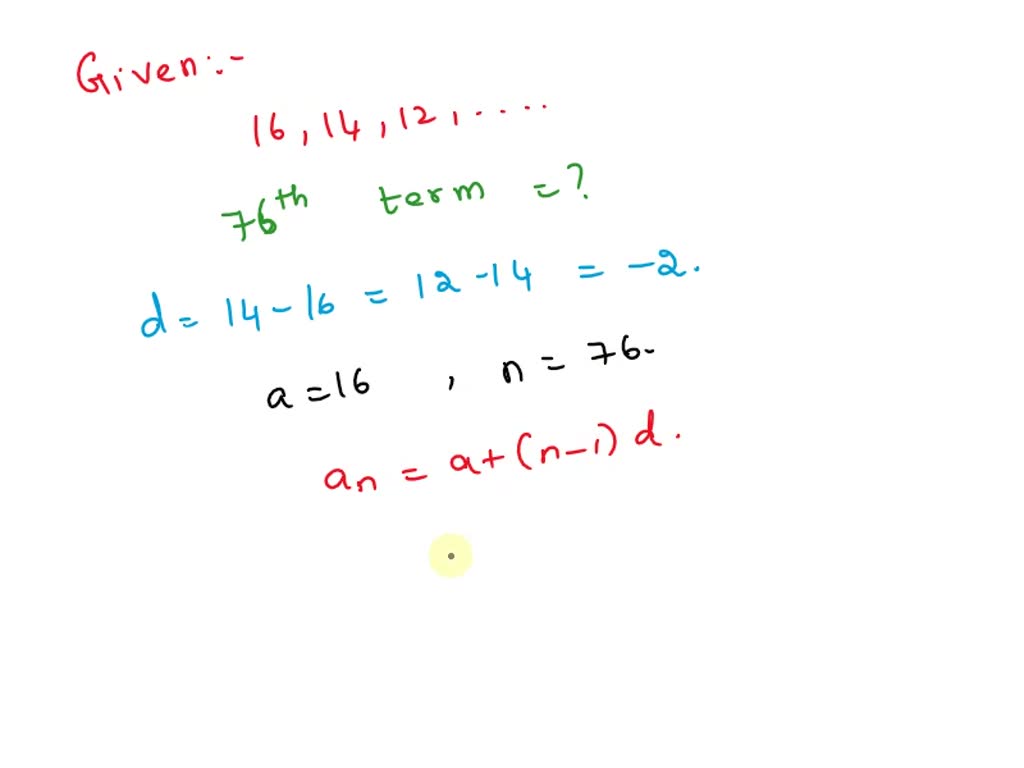 Given:-
16, 14, 12, ....
76th term = ?
d = 14 - 16 = 12 - 14 = -2.
a = 16 , n = 76.
an = a + (n-1) d.